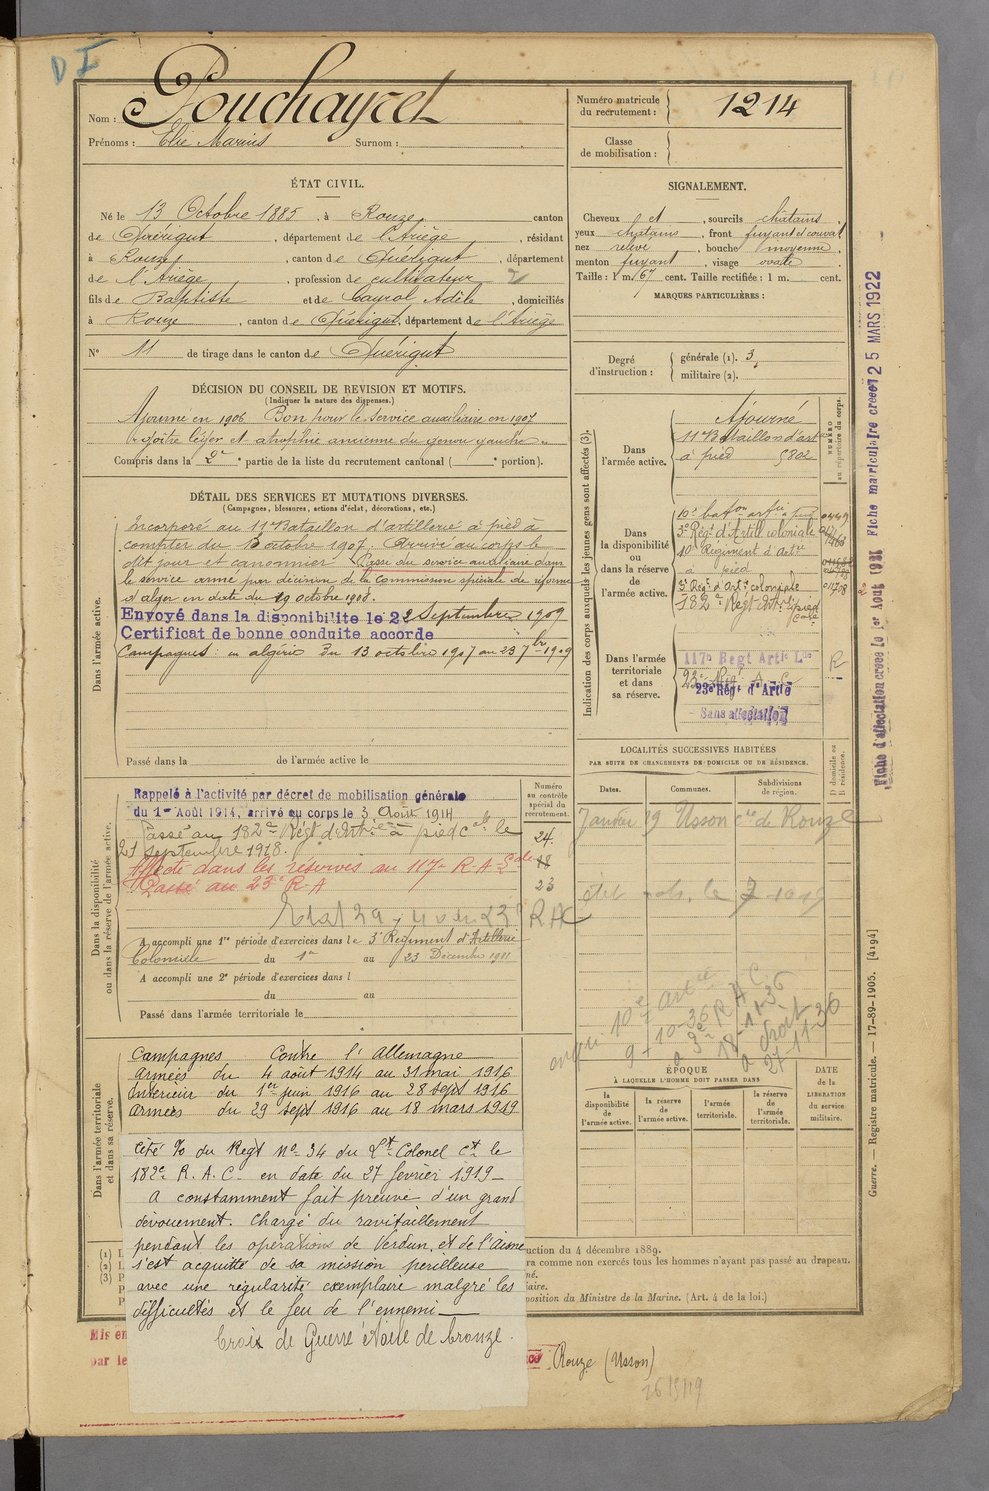 D I
Nom : Pouchayret
Prénoms : Elie Marius Surnom :
Numéro matricule
du recrutement : 1214
Classe
de mobilisation :
ÉTAT CIVIL.
Né le 13 Octobre 1885, à Rouze, canton
de Quérigut, département de l'Ariège, résidant
à Rouze, canton de Quérigut, département
de l'Ariège, profession de cultivateur
fils de Baptiste et de Cayrol Adèle, domiciliés
à Rouze, canton de Quérigut, département de l'Ariège
N° 11 de tirage dans le canton de Quérigut
SIGNALEMENT.
Cheveux et, sourcils chatains,
yeux chatains, front fuyant et couvert
nez relevé, bouche moyenne,
menton fuyant, visage ovale.
Taille : 1 m. 67 cent. Taille rectifiée : 1 m. cent.
MARQUES PARTICULIÈRES :
Degré
d'instruction :
générale (1). 3,
militaire (2).
DÉCISION DU CONSEIL DE REVISION ET MOTIFS.
(Indiquer la nature des dispenses.)
Ajourné en 1906. Bon pour le service auxiliaire en 1907
goitre léger et atrophie ancienne du genou gauche
Compris dans la 2e partie de la liste du recrutement cantonal ( e portion).
DÉTAIL DES SERVICES ET MUTATIONS DIVERSES.
(Campagnes, blessures, actions d'éclat, décorations, etc.)
Dans l'armée active.
Incorporé au 11e Bataillon d'artillerie à pied à
compter du 8 octobre 1907. Arrivé au corps le
dit jour et canonnier. Passé du service auxiliaire dans
le service armé par décision de la Commission spéciale de réforme
d'alger en date du 29 octobre 1908.
Envoyé dans la disponibilité le 22 Septembre 1909
Certificat de bonne conduite accordé
Campagnes : en algérie du 13 octobre 1907 au 23 7bre 1909
Passé dans la de l'armée active le
Indication des corps auxquels les jeunes gens sont affectés (3).
Dans
l'armée active.
Ajourné
11e Bataillon d'artie
à pied 5802
NUMÉRO
au répertoire du corps.
Dans
la disponibilité
ou
dans la réserve
de
l'armée active.
10e baton artie à pied
3e Régt d'Artill coloniale
10e Régiment d'Artie
à pied
3e Régt d'Artie coloniale
182e Regt Art. à pied
Dans l'armée
territoriale
et dans
sa réserve.
117e Regt Artie Lde
23e Rég. A. C
23e Régt d'Artie
Sans affectation
R
Fiche d'affectation créée le 1er Août 1921 Fiche matriculaire créée 25 MARS 1922
Dans la disponibilité
ou dans la réserve de l'armée active.
Rappelé à l'activité par décret de mobilisation générale
du 1er Août 1914, arrivé au corps le 3 Août 1914
Passé au 182e Régt d'Artie à pied le
21 Septembre 1918.
Affecté dans les réserves au 117e R.A.Lde
Passé au 23e R.A
Numéro
au contrôle
spécial du
recrutement.
24.
18
23
R A C
A accompli une 1re période d'exercices dans le 3e Régiment d'Artillerie
Coloniale du 1er au 23 Décembre 1911
A accompli une 2e période d'exercices dans l
du au
Passé dans l'armée territoriale le
LOCALITÉS SUCCESSIVES HABITÉES
PAR SUITE DE CHANGEMENTS DE DOMICILE OU DE RÉSIDENCE.
Dates. Communes. Subdivisions
de région.
D domicile ou
R résidence.
Janvier 19 Usson cne de Rouze
10e artie
9-10-36
18-11-36
27-11-36
ÉPOQUE
À LAQUELLE L'HOMME DOIT PASSER DANS
la
disponibilité
de
l'armée active.
la réserve
de
l'armée active.
l'armée
territoriale.
la réserve
de
l'armée
territoriale.
DATE
de la
LIBÉRATION
du service
militaire.
Dans l'armée territoriale
et dans sa réserve.
Campagnes Contre l'Allemagne
Armées du 4 août 1914 au 31 mai 1916
Intérieur du 1er juin 1916 au 28 sept 1916
Armées du 29 sept 1916 au 18 mars 1919
Cité % du Regt No 34 du Lt Colonel Ct le
182e R.A.C. en date du 27 février 1919
A constamment fait preuve d'un grand
dévouement. Chargé du ravitaillement
pendant les opérations de Verdun, et de l'Aisne
s'est acquitté de sa mission périlleuse
avec une régularité exemplaire malgré les
difficultés et le feu de l'ennemi
Croix de Guerre étoile de bronze.
(1)
(2)
(3)
uction du 4 décembre 1889.
ra comme non exercés tous les hommes n'ayant pas passé au drapeau.
né.
iaire.
position du Ministre de la Marine. (Art. 4 de la loi.)
Guerre. — Registre matricule. — 17-89-1905. [4194]
Mis en
par le
Rouze (Usson)